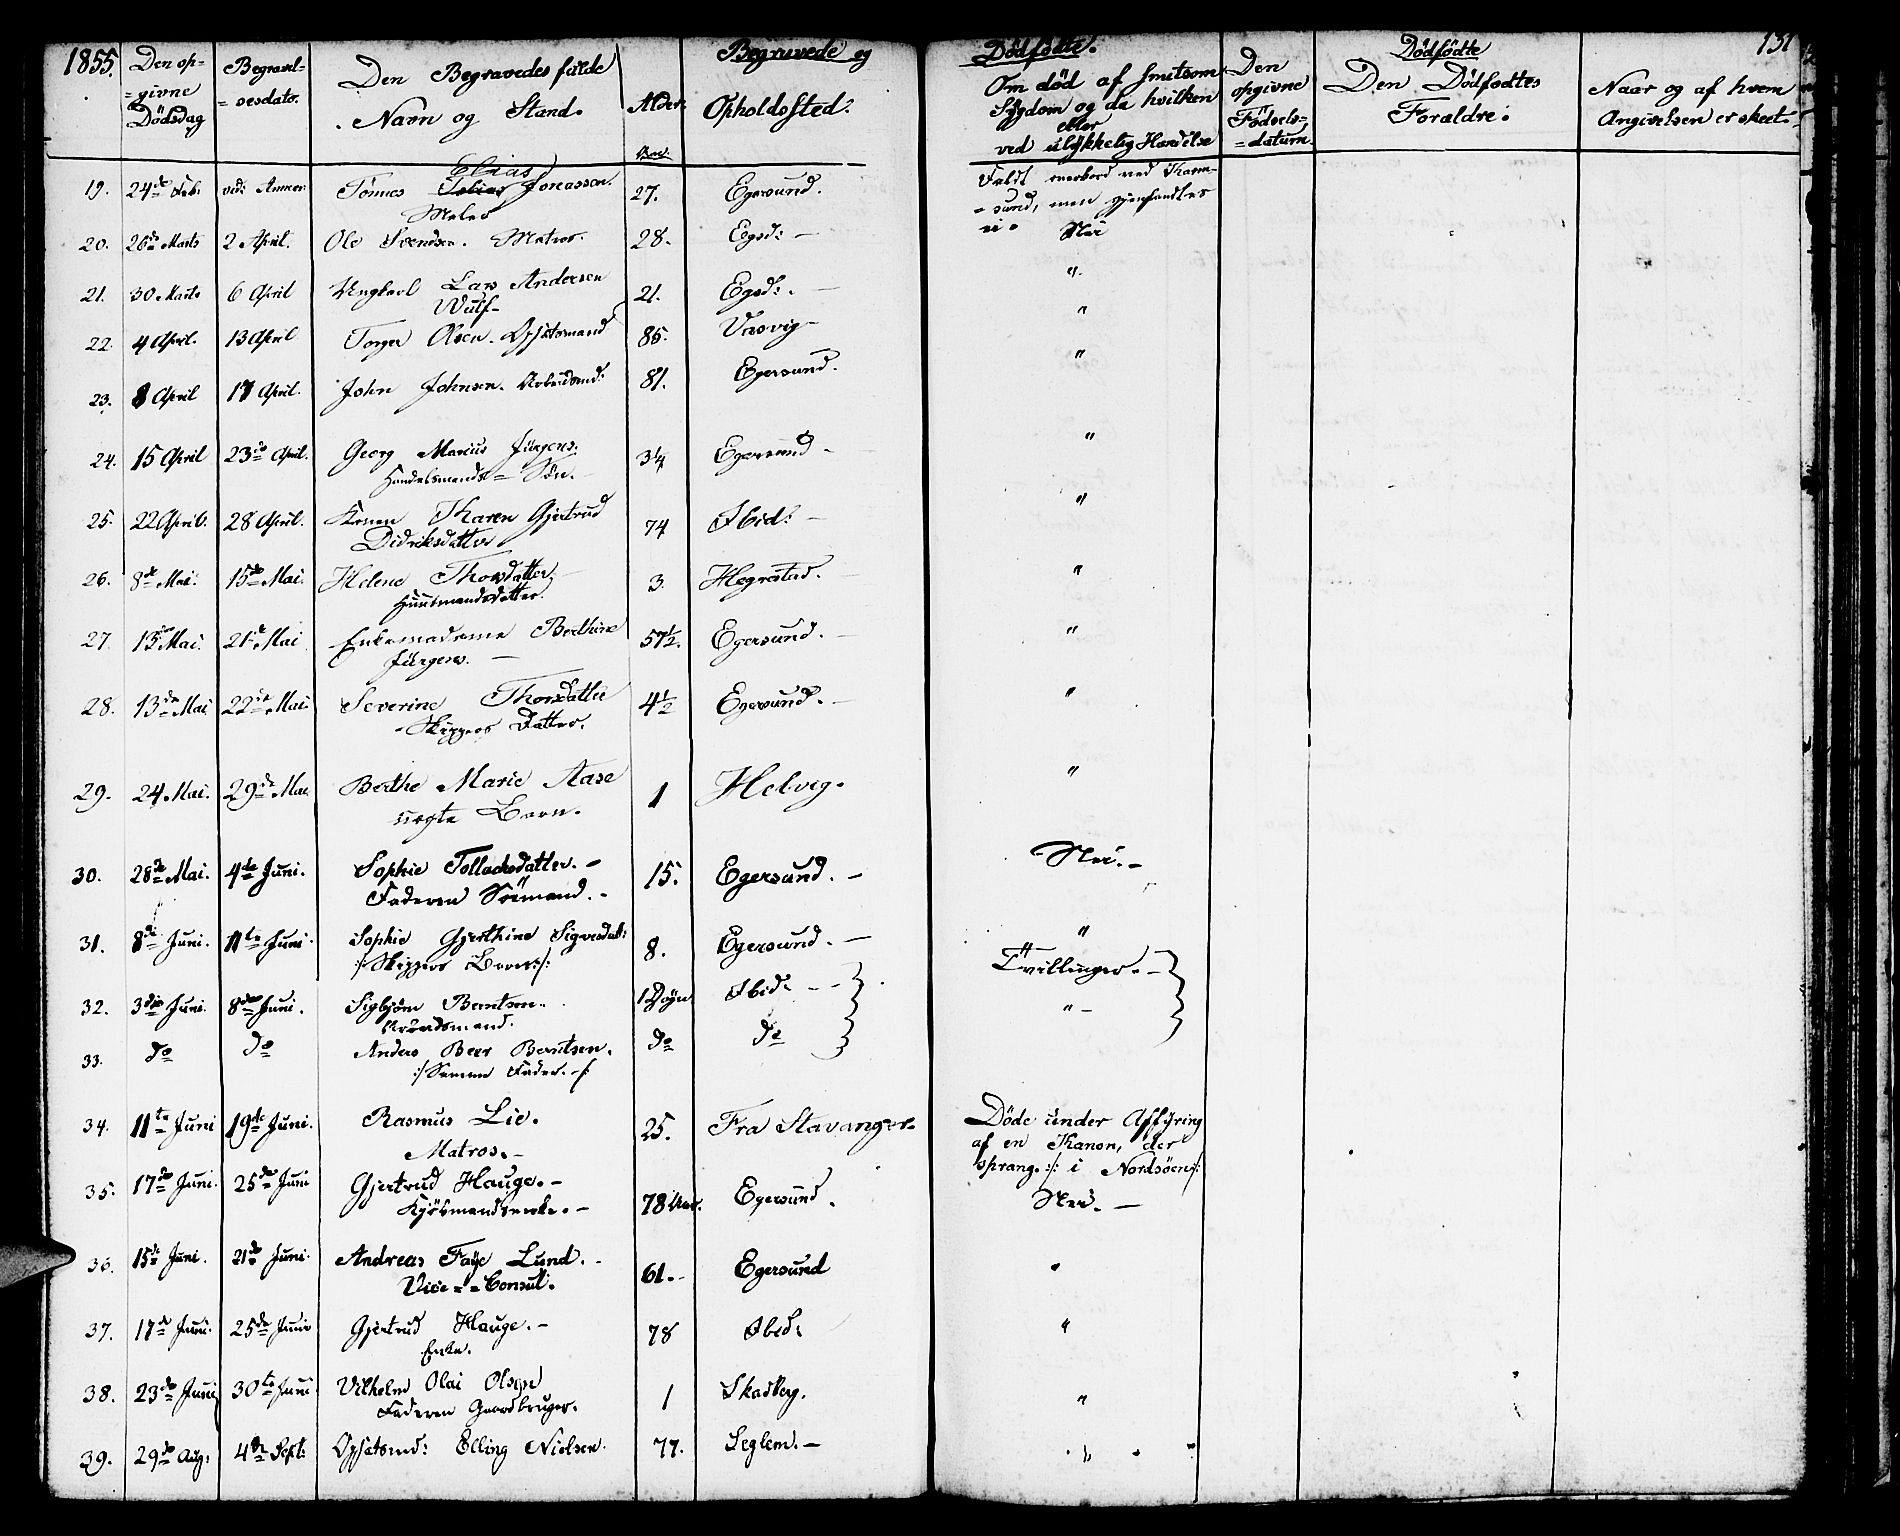 1855.
Den op=
=givne
Dödsdag
Begravel=
=sesdato.
Den Begravedes fulde
Navn og Stand.
Alder.
Aar.
Begravede og
Opholdssted.
Dödfödte.
Om död af smitsom
Sygdom og da hvilken
eller
ved ulykkelig Hændelse
Den
opgivne
Födsels=
=datum.
Dödfödte
Den Dödfödtes
Forældre.
131
Naar og af hvem
Angivelsen er skeet.
19. 24de Feb. Tönnes Tobias Elias Jonassen. 27. Egersund. Faldt overbord ved Karm=
Maler =sund, men gjenfandtes
ei.
20. 26de Marts 2 April. Ole Svendsen. Matros. 28. Egsd: – Nei
21. 30 Marts 6 April Ungkarl Lars Andersen 21. Egsd: – "
Wulf
22. 4 April. 13 April Torger Olsen. Opsidsmand 85. "
23. 8 April 17 April. John Johnsen. Arbeidsmd: 81. Egersund. "
24. 15 April 23de April. Georg Marius Jürgens: 3¼ Egersund – "
Handelsmands= Sön. –
25. 22 April. 28 April. Konen Karen Gjertrud 74 Ibid: – "
Didriksdatter
26. 8de Mai. 15de Mai. Helene Thorsdatter, 3. Hegrestad. "
Huusmandsdatter.
27. 13de Mai. 21de Mai Enkemadame Berthine 57½. Egersund. "
Jürgens. –
28. 13de Mai 22de Mai Severine Thorsdatter 4½ Egersund. – "
Skippers Datter.
29. 24 Mai. 29de Mai Berthe Marie Aase 1 Helvig. "
uægte Barn.
30. 28de Mai. 4de Juni. Sophie Tollachsdatter. – 15. Egersund. – Nei. –
Faderen Sömand. –
31. 8de Juni. 11te Juni. Sophie Gjerthine Sigvesdatt: 8. Egersund. – "
/: Skippers Barn :/
32. 3die Juni. 8de Juni. Sigbjörn Berntsen. 1 Dögn Ibid: – – Tvillinger. –
Arbeidsmand. " –
33. do do Anders Beer Berntsen. do do
/: Samme Fader. :/
34. 11te Juni 19de Juni. Rasmus Lie. 25. Fra Stavanger. Döde under Affyring
Matros. – af en Kanon, der
sprang. /: i Nordsöen :/
35. 17de Juni. 25de Juni Gjertrud Hauge. – 78 Aar. Egersund. Nei. –
Kjöbmandsenke. –
36. 15de Juni. 21de Juni. Andreas Faye Lund. – 61. – Egersund "
Vice= =Consul.
37. 17de Juni. 25de Juni Gjertrud Hauge. – 78 Ibid: "
Enke.
38. 23de Juni 30te Juni Vilhelm Olai Olsen 1 Skadberg. "
Faderen Gaardbruger.
39. 29de Aug: 4de Sept: Opsidsmd: Elling Nielsen. 77. Leglem. – "